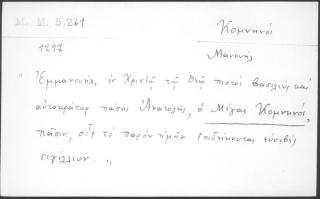 M. M. 5,261
Κομνηνός
1297
Μανουήλ
"Ἐμμανουήλ, ἐν Χριστῷ τῷ Θεῷ πιστὸς βασιλεὺς καὶ
αὐτοκράτωρ πάσης Ἀνατολῆς, ὁ Μέγας Κομνηνός,
πᾶσιν, οἷς τὸ παρὸν ἡμῶν ἐπιδείκνυται εὐσεβὲς
σιγίλλιον.„